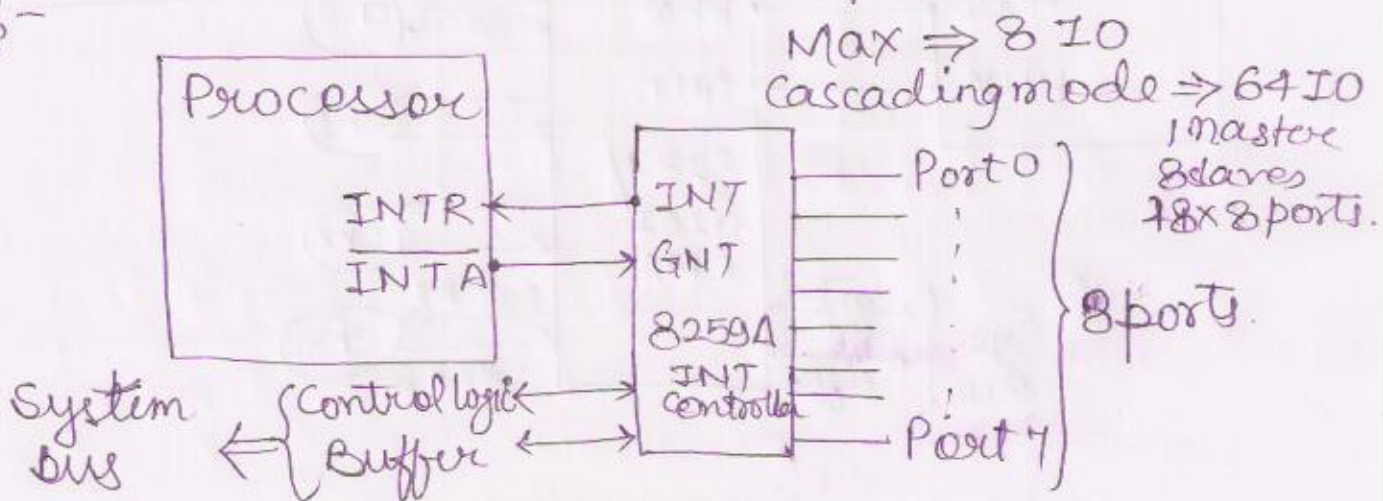 Max ⇒ 8 IO
Cascading mode ⇒ 64 IO
1 master
8 slaves
⇒8x8 ports.
Processor
INTR
INTA
INT
GNT
8259A
INT
Controller
Port 0
Port 7
8 ports.
System
bus
Control logic
Buffer